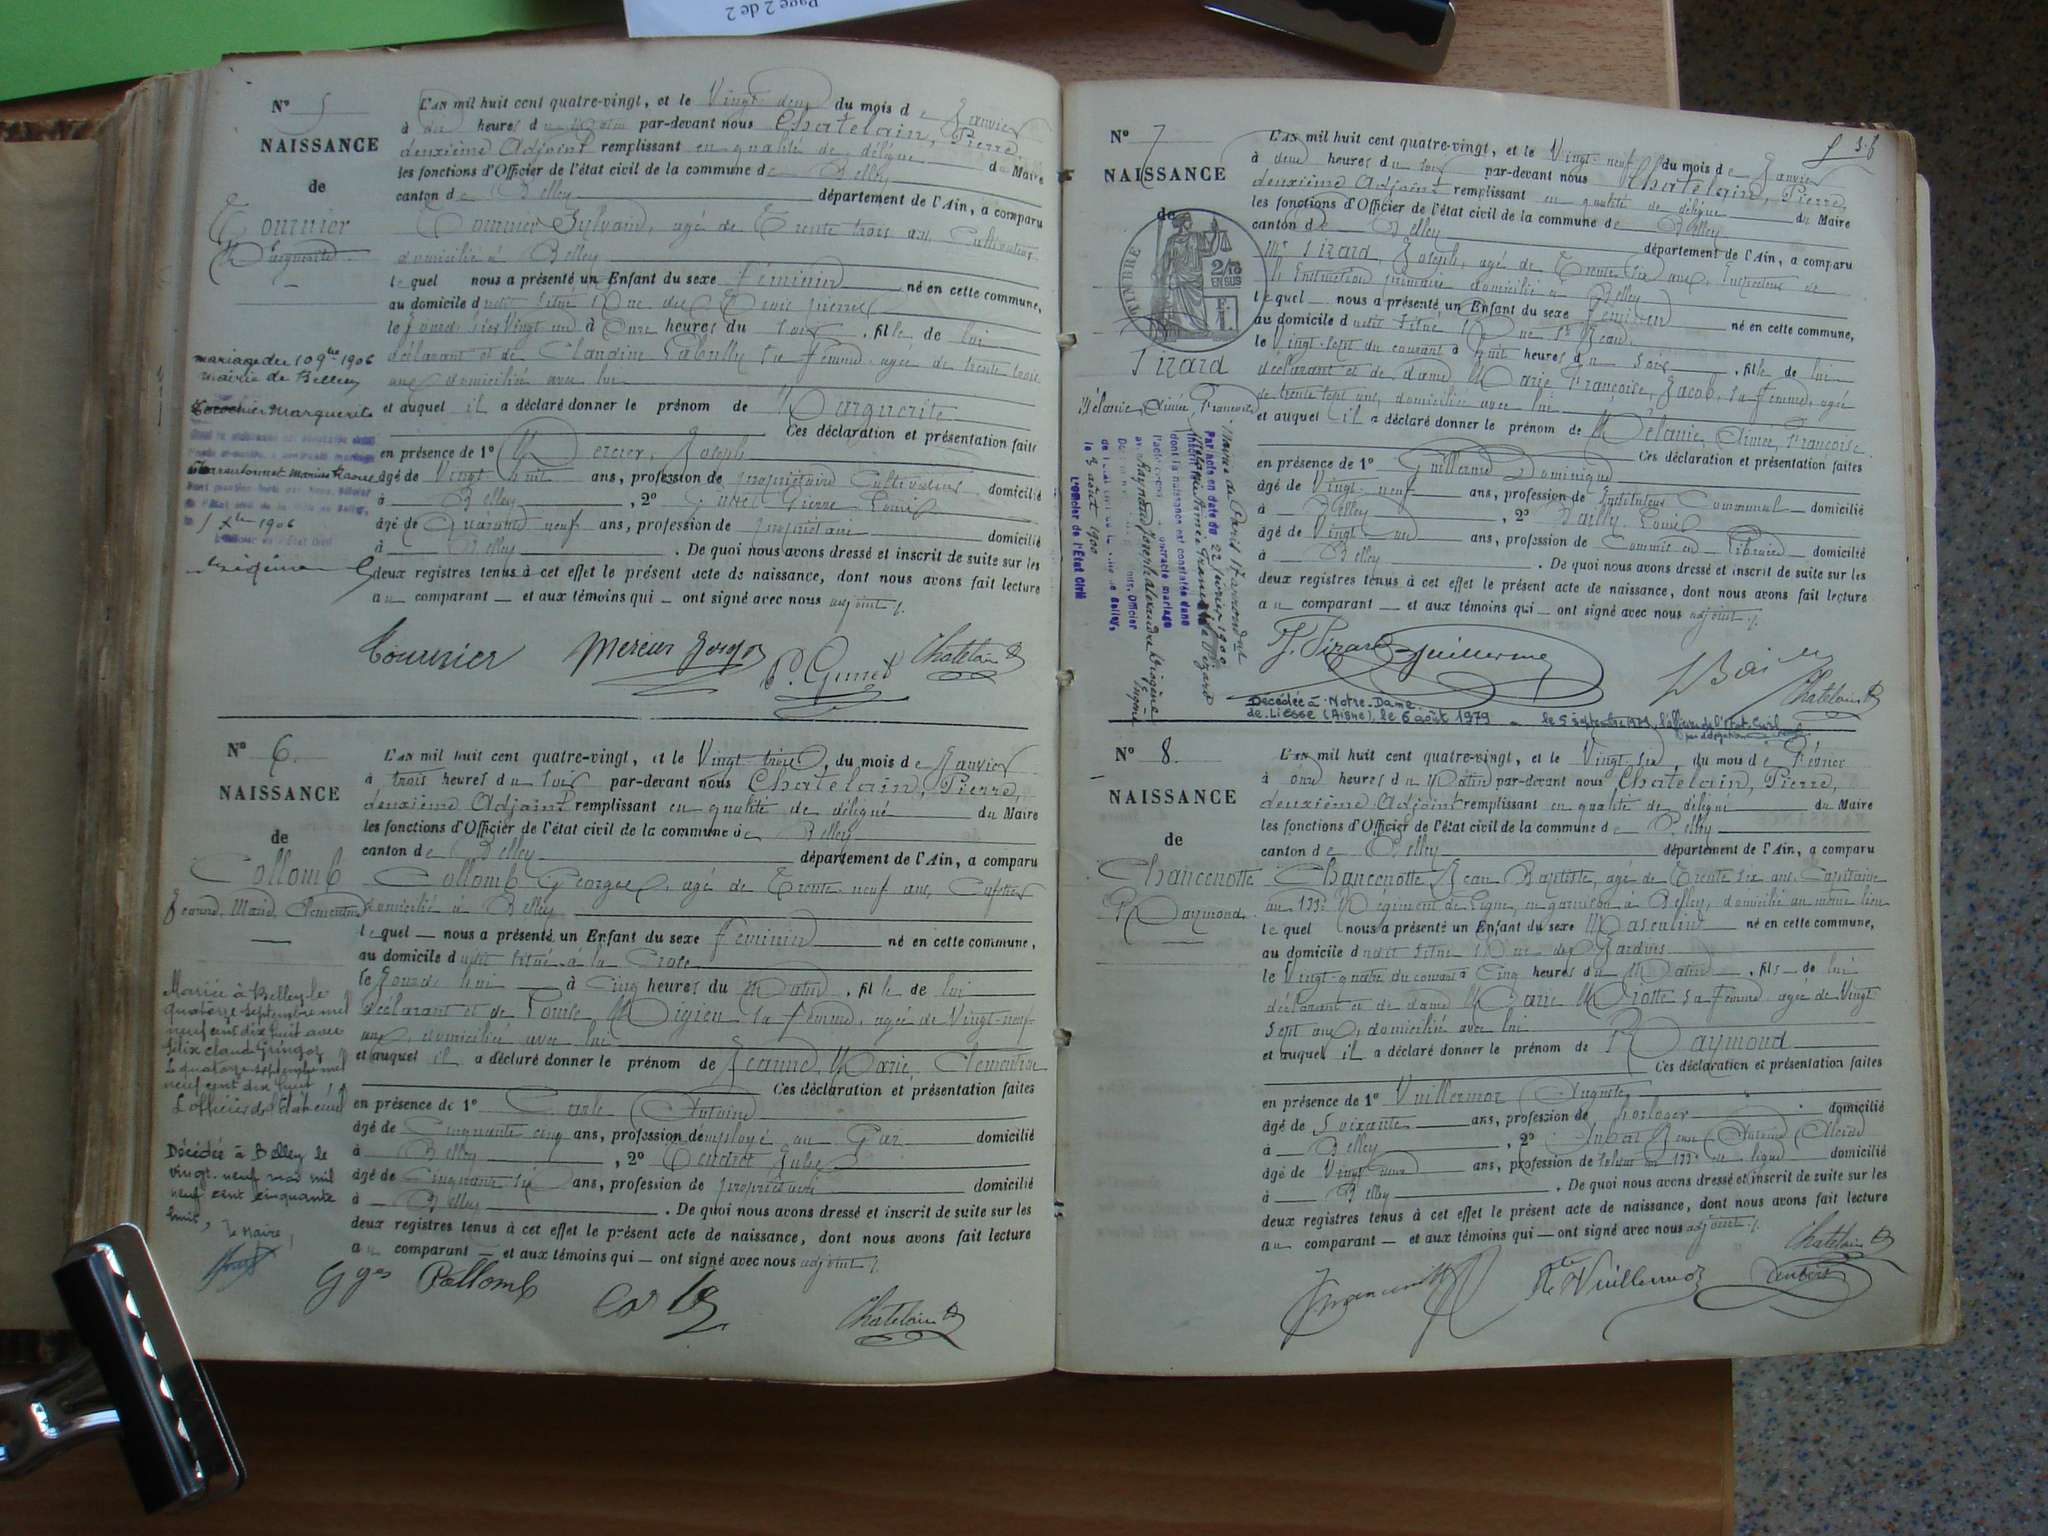 Page 2 de 2
N° 5
NAISSANCE
de
Tournier
Marguerite
L'AN mil huit cent quatre-vingt, et le Vingt deux du mois de Janvier
à dix heures du Matin par-devant nous Chatelain, Pierre,
deuxième Adjoint remplissant en qualité de délégué du Maire
les fonctions d'Officier de l'état civil de la commune de Belley
canton de Belley département de l'Ain, a comparu
Tournier Sylvain, agé de Trente trois ans, Cultivateur
domicilié à Belley
lequel nous a présenté un Enfant du sexe féminin né en cette commune,
au domicile dudit situé Rue des Trois pierres
le jour d'hier Vingt un à onze heures du soir, fille de lui
déclarant et de Claudine sa femme, agée de trente trois
ans, domiciliée avec lui
et auquel il a déclaré donner le prénom de Marguerite
Ces déclaration et présentation faites
en présence de 1° Mercier, Joseph
âgé de Vingt huit ans, profession de propriétaire Cultivateur domicilié
à Belley, 2° Pierre Louis
âgé de Quarante neuf ans, profession de propriétaire domicilié
à Belley. De quoi nous avons dressé et inscrit de suite sur les
deux registres tenus à cet effet le présent acte de naissance, dont nous avons fait lecture
au comparant et aux témoins qui ont signé avec nous adjoint
mariage du 10 9bre 1906
mairie de Belley
Marguerite
1906
Tournier Mercier Joseph Chatelain P
N° 6.
NAISSANCE
de
Collomb
Jeanne, Marie, Clémentine
L'AN mil huit cent quatre-vingt, et le Vingt-trois, du mois de Janvier
à trois heures du soir par-devant nous Chatelain, Pierre,
deuxième Adjoint remplissant en qualité de délégué du Maire
les fonctions d'Officier de l'état civil de la commune de Belley
canton de Belley département de l'Ain, a comparu
Collomb, Georges, agé de Trente neuf ans, Cafetier
domicilié à Belley
lequel nous a présenté un Enfant du sexe féminin né en cette commune,
au domicile dudit situé à la Croze
le jour d'hui à Cinq heures du Matin, fille de lui
déclarant et de Louise Migieu sa femme, agée de Vingt-neuf
ans, domiciliée avec lui
et auquel il a déclaré donner le prénom de Jeanne, Marie, Clémentine
Ces déclaration et présentation faites
en présence de 1° Carle Antoine
âgé de Cinquante cinq ans, profession de employé au Gaz domicilié
à Belley, 2° Jules
âgé de Cinquante six ans, profession de propriétaire domicilié
à Belley. De quoi nous avons dressé et inscrit de suite sur les
deux registres tenus à cet effet le présent acte de naissance, dont nous avons fait lecture
au comparant et aux témoins qui ont signé avec nous adjoint
Mariée à Belley le
quatorze septembre mil
neuf cent dix huit avec
Félix Claude Gringoz
Le quatorze septembre mil
neuf cent dix huit
L'officier de l'état civil
Décédée à Belley le
vingt-neuf mai mil
neuf cent cinquante
huit,
Le Maire,
Gges Collomb Carle Chatelain P
N° 7
NAISSANCE
de
TIMBRE
2/10
EN SUS
Sizard
Mélanie, Aimée, Françoise
L'AN mil huit cent quatre-vingt, et le Vingt-neuf du mois de Janvier
à deux heures du soir par-devant nous Chatelain, Pierre,
deuxième Adjoint remplissant en qualité de délégué du Maire
les fonctions d'Officier de l'état civil de la commune de Belley
canton de Belley département de l'Ain, a comparu
Mr Sizard, Joseph, agé de Trente six ans, Inspecteur de
l'Instruction primaire domicilié à Belley
lequel nous a présenté un Enfant du sexe féminin né en cette commune,
au domicile dudit situé Rue St Jean
le Vingt-sept du courant à huit heures du soir, fille de lui
déclarant et de dame Marie Françoise Jacob, sa femme, agée
de trente sept ans, domiciliée avec lui
et auquel il a déclaré donner le prénom de Mélanie, Aimée, Françoise
Ces déclaration et présentation faites
en présence de 1° Guillerme Dominique
âgé de Vingt-neuf ans, profession de Instituteur Communal domicilié
à Belley, 2° Bailly Louis
âgé de Vingt-un ans, profession de Commis en Librairie domicilié
à Belley. De quoi nous avons dressé et inscrit de suite sur les
deux registres tenus à cet effet le présent acte de naissance, dont nous avons fait lecture
au comparant et aux témoins qui ont signé avec nous adjoint
Par acte en date du 22 1900
dont la naissance est constatée dans
contracté mariage
le 3 août 1900
L'Officier de l'État Civil
J. Sizard Guillerme Chatelain P
Décédée à Notre-Dame
de Liesse (Aisne), le 6 août 1979 le 5 septembre 1979, l'officier de l'état civil
N° 8.
NAISSANCE
de
Chancenotte
Raymond
L'AN mil huit cent quatre-vingt, et le Vingt six, du mois de Février
à onze heures du Matin par-devant nous Chatelain, Pierre,
deuxième Adjoint remplissant en qualité de délégué du Maire
les fonctions d'Officier de l'état civil de la commune de Belley
canton de Belley département de l'Ain, a comparu
Chancenotte Jean Baptiste, agé de Trente six ans, Capitaine
au 133e Régiment de Ligne, en garnison à Belley, domicilié au même lieu
lequel nous a présenté un Enfant du sexe Masculin né en cette commune,
au domicile dudit situé Rue des Jardins
le Vingt-quatre du courant à Cinq heures du Matin, fils de lui
déclarant et de dame Marie Miotte sa femme agée de Vingt
sept ans, domiciliée avec lui
et auquel il a déclaré donner le prénom de Raymond
Ces déclaration et présentation faites
en présence de 1° Vuillermoz Auguste
âgé de Soixante ans, profession de horloger domicilié
à Belley, 2° Antoine Alcide
âgé de Vingt deux ans, profession de soldat au 133e de ligne domicilié
à Belley. De quoi nous avons dressé et inscrit de suite sur les
deux registres tenus à cet effet le présent acte de naissance, dont nous avons fait lecture
au comparant et aux témoins qui ont signé avec nous adjoint
Vuillermoz Chatelain P